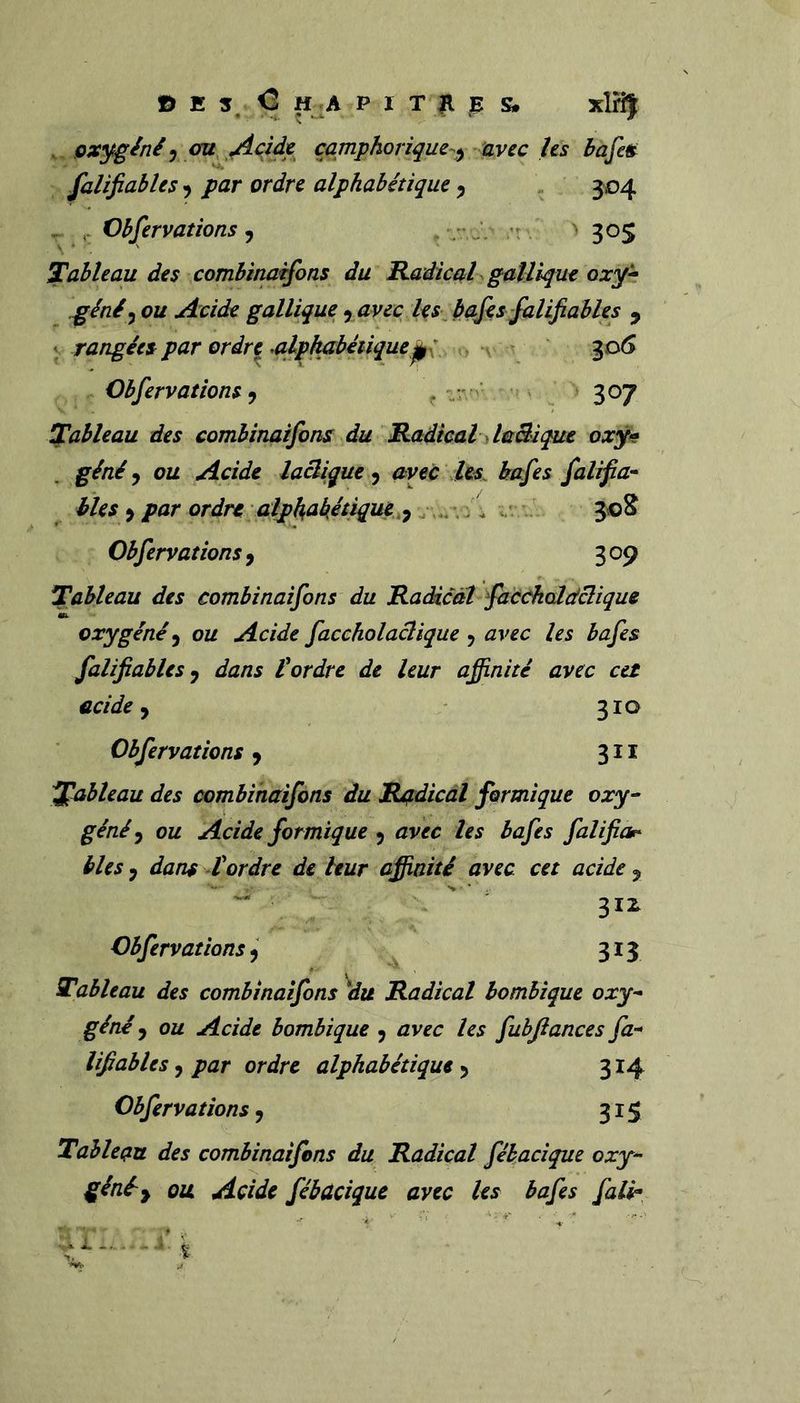 DES CHAPITRES.
oxygéné, ou Acide camphorique, avec les baſes
ſaliſiables, par ordre alphabétique, 304
Obſervations, 305
Tableau des combinaiſons du Radical gallique oxy-
géné, ou Acide gallique, avec les baſes ſaliſiables,
rangées par ordre alphabétique, 306
Obſervations, 307
Tableau des combinaiſons du Radical lactique oxy-
géné, ou Acide lactique, avec les baſes ſaliſia-
bles, par ordre alphabétique, 308
Obſervations, 309
Tableau des combinaiſons du Radical ſaccholactique
oxygéné, ou Acide ſaccholactique, avec les baſes
ſaliſiables, dans l'ordre de leur affinité avec cet
acide, 310
Obſervations, 311
Tableau des combinaiſons du Radical formique oxy-
géné, ou Acide formique, avec les baſes ſaliſia-
bles, dans l'ordre de leur affinité avec cet acide,
312
Obſervations, 313
Tableau des combinaiſons du Radical bombique oxy-
géné, ou Acide bombique, avec les ſubſtances ſa-
liſiables, par ordre alphabétique, 314
Obſervations, 315
Tableau des combinaiſons du Radical ſébacique oxy-
géné, ou Acide ſébacique avec les baſes ſali-